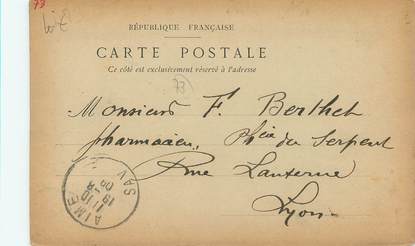 73
RÉPUBLIQUE FRANÇAISE
CARTE POSTALE
Ce côté est exclusivement réservé à l'adresse
73
Monsieur F. Berthet
pharmacien, Phcie du Serpent
Rue Lanterne
Lyon
AIME
SAV